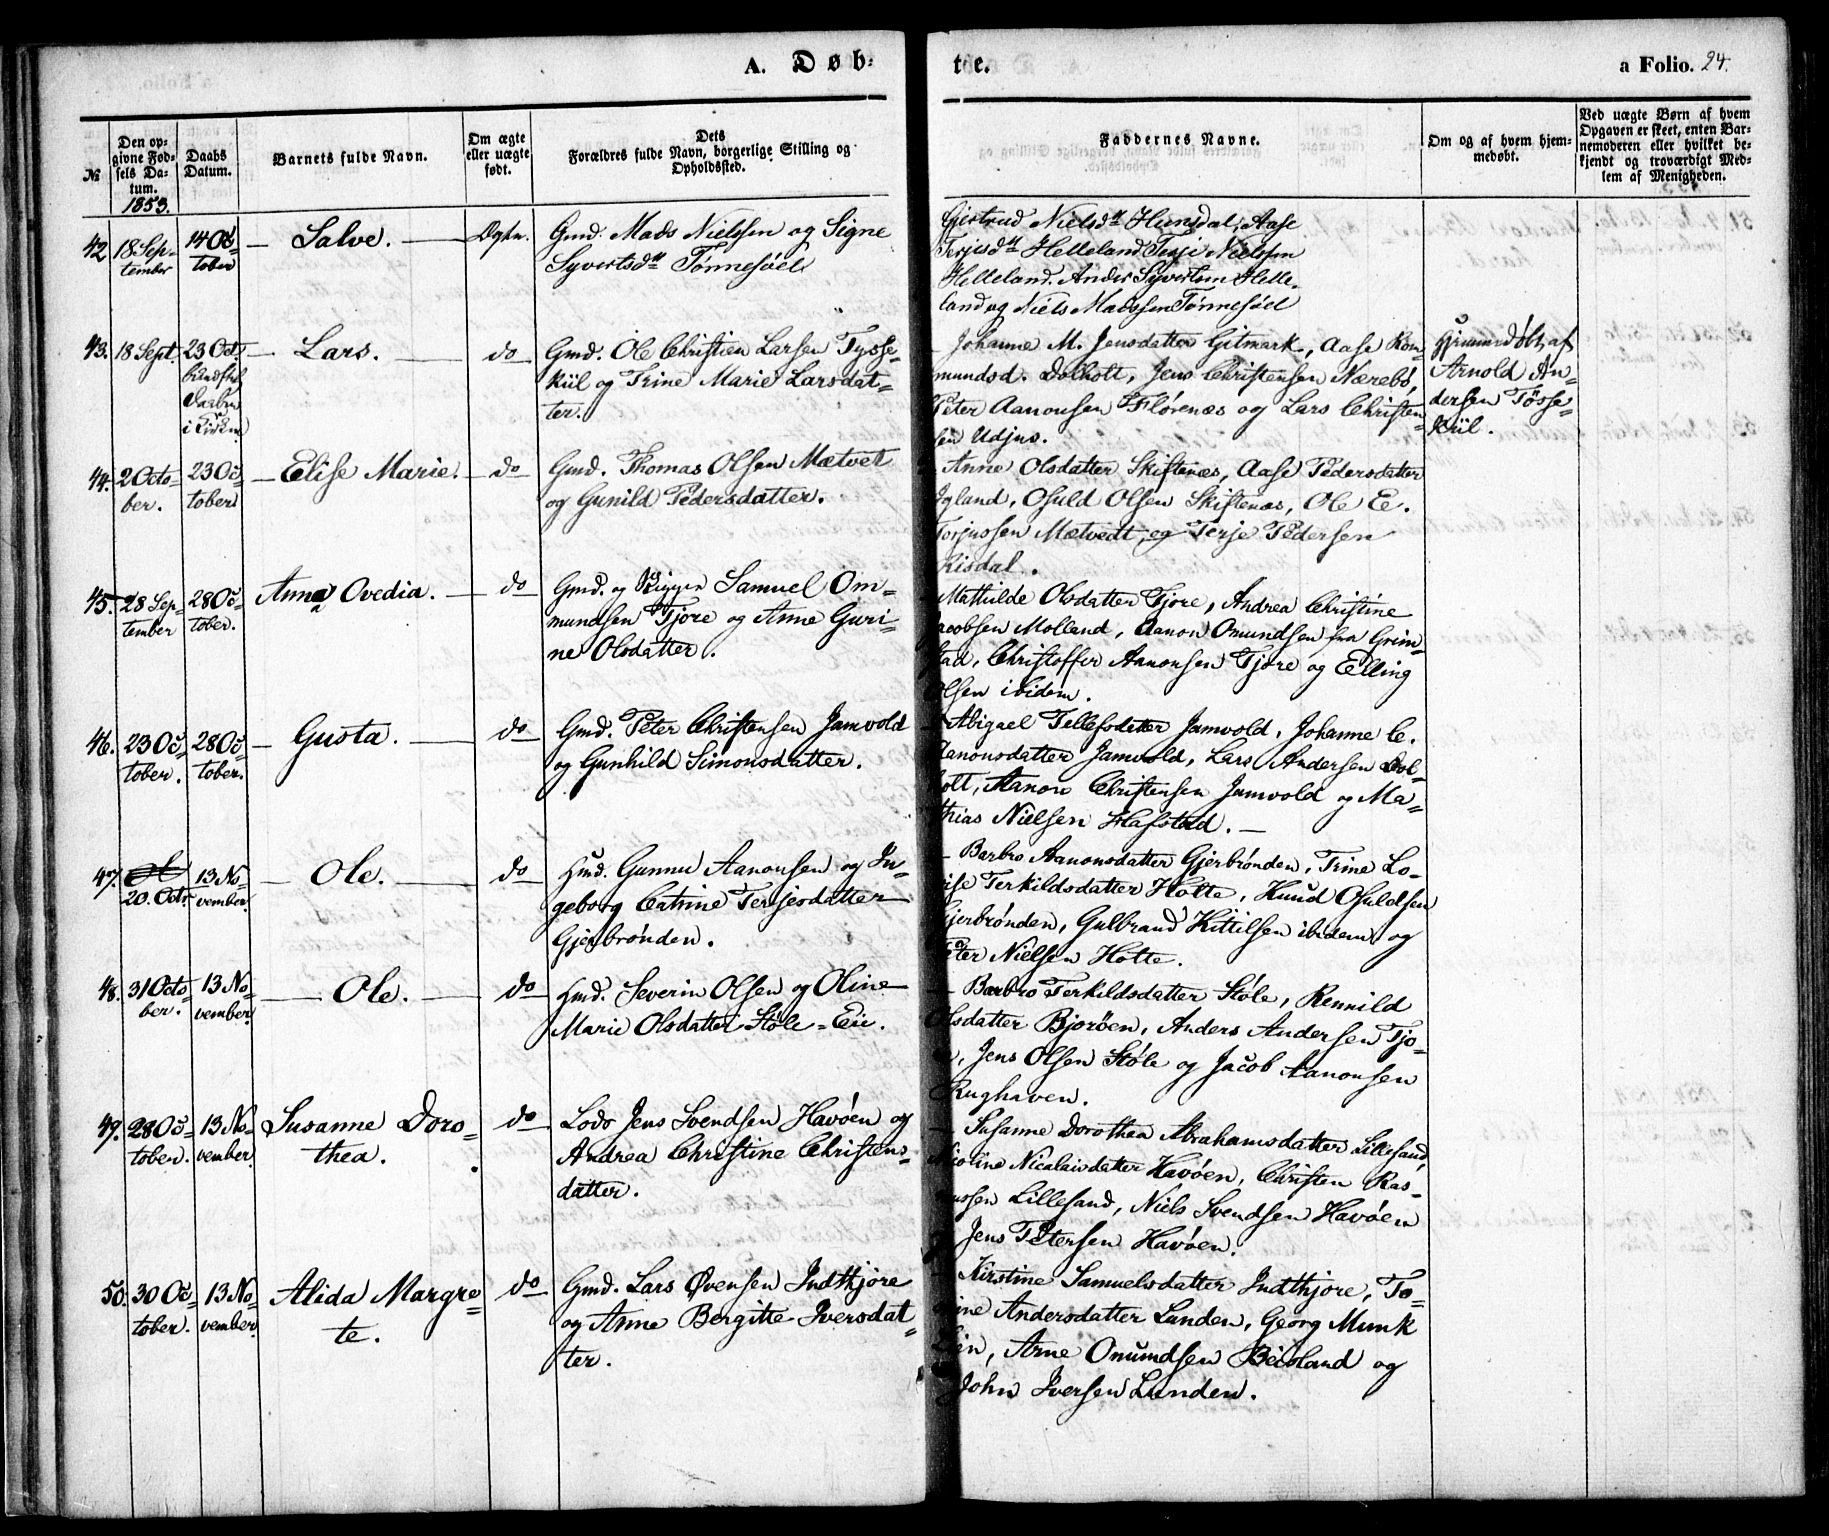 A. Døb-
te.
a Folio. 24.
№
Den op-
givne Fød-
sels Da-
tum.
1853.
Daabs
Datum.
Barnets fulde Navn.
Om ægte
eller uægte
født.
Dets
Forældres fulde Navn, borgerlige Stilling og
Opholdssted.
Faddernes Navne.
Om og af hvem hjem-
medøbt.
Ved uægte Børn af hvem
Opgaven er skeet, enten Bar-
nemoderen eller hvilket be-
kjendt og troværdigt Med-
lem af Menigheden.
42
18 Sep-
tember
14 Oc
tober
Salve.
Ægte.
Gmd. Mads Nielsen og Signe
Syvertsdtr Tønnesøel
Gjertrud Nielsdtr Hunsdal, Aase
Terjesdtr Helleland Terje Nielssen
Helleland. Anders Syvertsen Helle-
land og Niels Madssen Tønnesøel
43.
18 Sept.
23 Oct.
i Kirken
Lars.
do
Gmd. Ole Christien Larsen Tysse-
kiil og Trine Marie Larsdat-
ter.
Johanne M. Jensdatter Gitmark, Aase Rom-
mundsd. Dolholt, Jens Christensen Nærebø,
Peter Aanonsen Flørenæs og Lars Christen-
sen Udjus.
Hjemmedøbt af
Arnold An-
dersen Tösse-
kiil.
44.
2 Octo-
ber.
23 Oc-
tober
Elise Marie.
do
Gmd. Thomas Olsen Mætvet
og Gunild Pedersdatter.
Anne Olsdatter Skiftenæs, Aase Pedersdatter
Igland, Osuld Olsen Skiftenæs, Ole E.
Torjussen Mætvedt, og Terje Pedersen
Risdal.
45.
28 Sep-
tember
28 Oc-
tober.
Anna Ovedia.
do
Gmd. og Rigger Samuel Om-
mundsen Tjore og Anne Guri-
ne Olsdatter.
Mathilde Olsdatter Tjore, Andrea Christine
Jacobsen Molland, Aanon Omundsen fra Grim-
stad, Christoffer Aanonsen Tjore og Elling
Olsen ibidem.
46.
23 Oc-
tober.
28 Oc-
tober.
Gusta.
do
Gmd. Peter Christensen Jamvold
og Gunhild Simonsdatter.
Abigael Tellefsdatter Jamvold, Johanne C.
Aanonsdatter Jamvold, Lars Andersen Dol-
holt, Aanon Christensen Jamvold og Ma-
thias Nielsen Hafstad.
47.
20. Octr.
13 No-
vember.
Ole.
do
Hmd. Gunnu Aanonsen og In-
geborg Catrine Terjesdatter
Gjerbrønden.
Barbro Aanonsdatter Gjerbrønden, Trine Lo-
vise Terkildsdatter Holte, Knud Osuldsen
Gjerbrønden, Gulbrand Kittilsen ibidem og
Peter Nielsen Holte.
48.
31 Octo-
ber.
13 No-
vember.
Ole.
do
Hmd. Severin Olsen og Oline
Marie Olsdatter Støle-Eie.
Barbro Terkildsdatter Støle, Rennild
Olsdatter Bjorøen, Anders Andersen Tjo-
re, Jens Olsen Støle og Jacob Aanonsen
Rughaven.
49.
28 Oc-
tober.
13 No-
vember.
Susanne Doro-
thea.
do
Lods Jens Svendsen Havøen og
Andrea Christine Christens-
datter.
Susanne Dorothea Abrahamsdatter Lillesand,
Nicoline Nicolaisdatter Havøen, Christen Ras-
mussen Lillesand, Niels Svendsen Havøen
og Jens Petersen Havøen.
50.
30 Oc-
tober.
13 No-
vember.
Alida Margre-
te.
do
Gmd. Lars Øvensen Indthjore
og Anne Bergitte Iversdat-
ter.
Kirstine Samuelsdatter Indthjore, To-
mine Andersdatter Lunden, Georg Munk
Arne Onumdsen Beisland og
John Iversen Lunden.